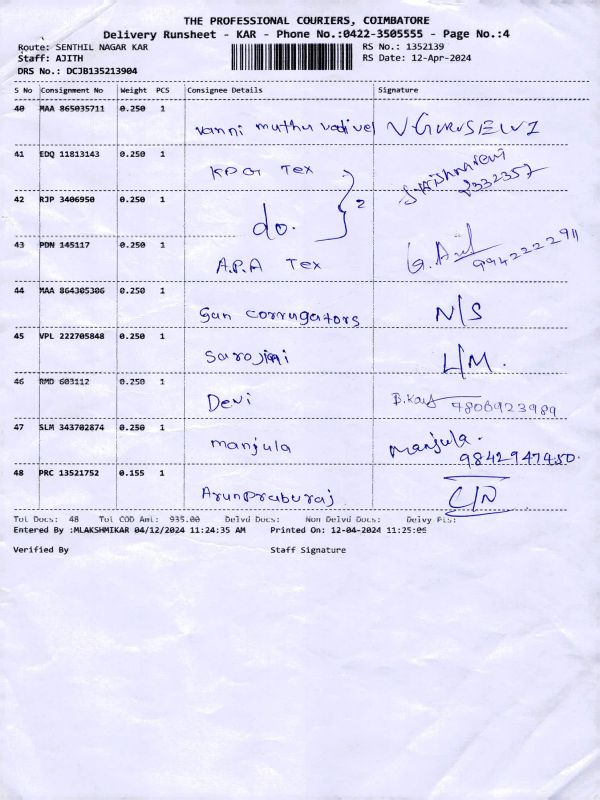 THE PROFESSIONAL COURIERS, COIMBATORE
Delivery Runsheet - KAR - Phone No.:0422-3505555 - Page No.:4
Route: SENTHIL NAGAR KAR RS No.: 1352139
Staff: AJITH RS Date: 12-Apr-2024
DRS No.: DCJB135213904
S No Consignment No Weight PCS Consignee Details Signature
40 MAA 865035711 0.250 1
Vanni muthu vadivel N GURUSELVI
41 EDQ 11813143 0.250 1
KPG Tex
2332357
42 RJP 3406950 0.250 1
do. 2
43 PDN 145117 0.250 1
A.P.A Tex 9942222911
44 MAA 864305306 0.250 1
San corrugators N/S
45 VPL 222705848 0.250 1
Sarojini L/M.
46 RMD 603112 0.250 1
Devi 9806923989
47 SLM 343702874 0.250 1
manjula Manjula.
9842947450.
48 PRC 13521752 0.155 1
Arunpraburaj C/N
Tot Docs: 48 Tot COD Amt: 935.00 Delvd Docs: Non Delvd Docs: Delvy Pts:
Entered By :MLAKSHMIKAR 04/12/2024 11:24:35 AM Printed On: 12-04-2024 11:25:06
Verified By Staff Signature